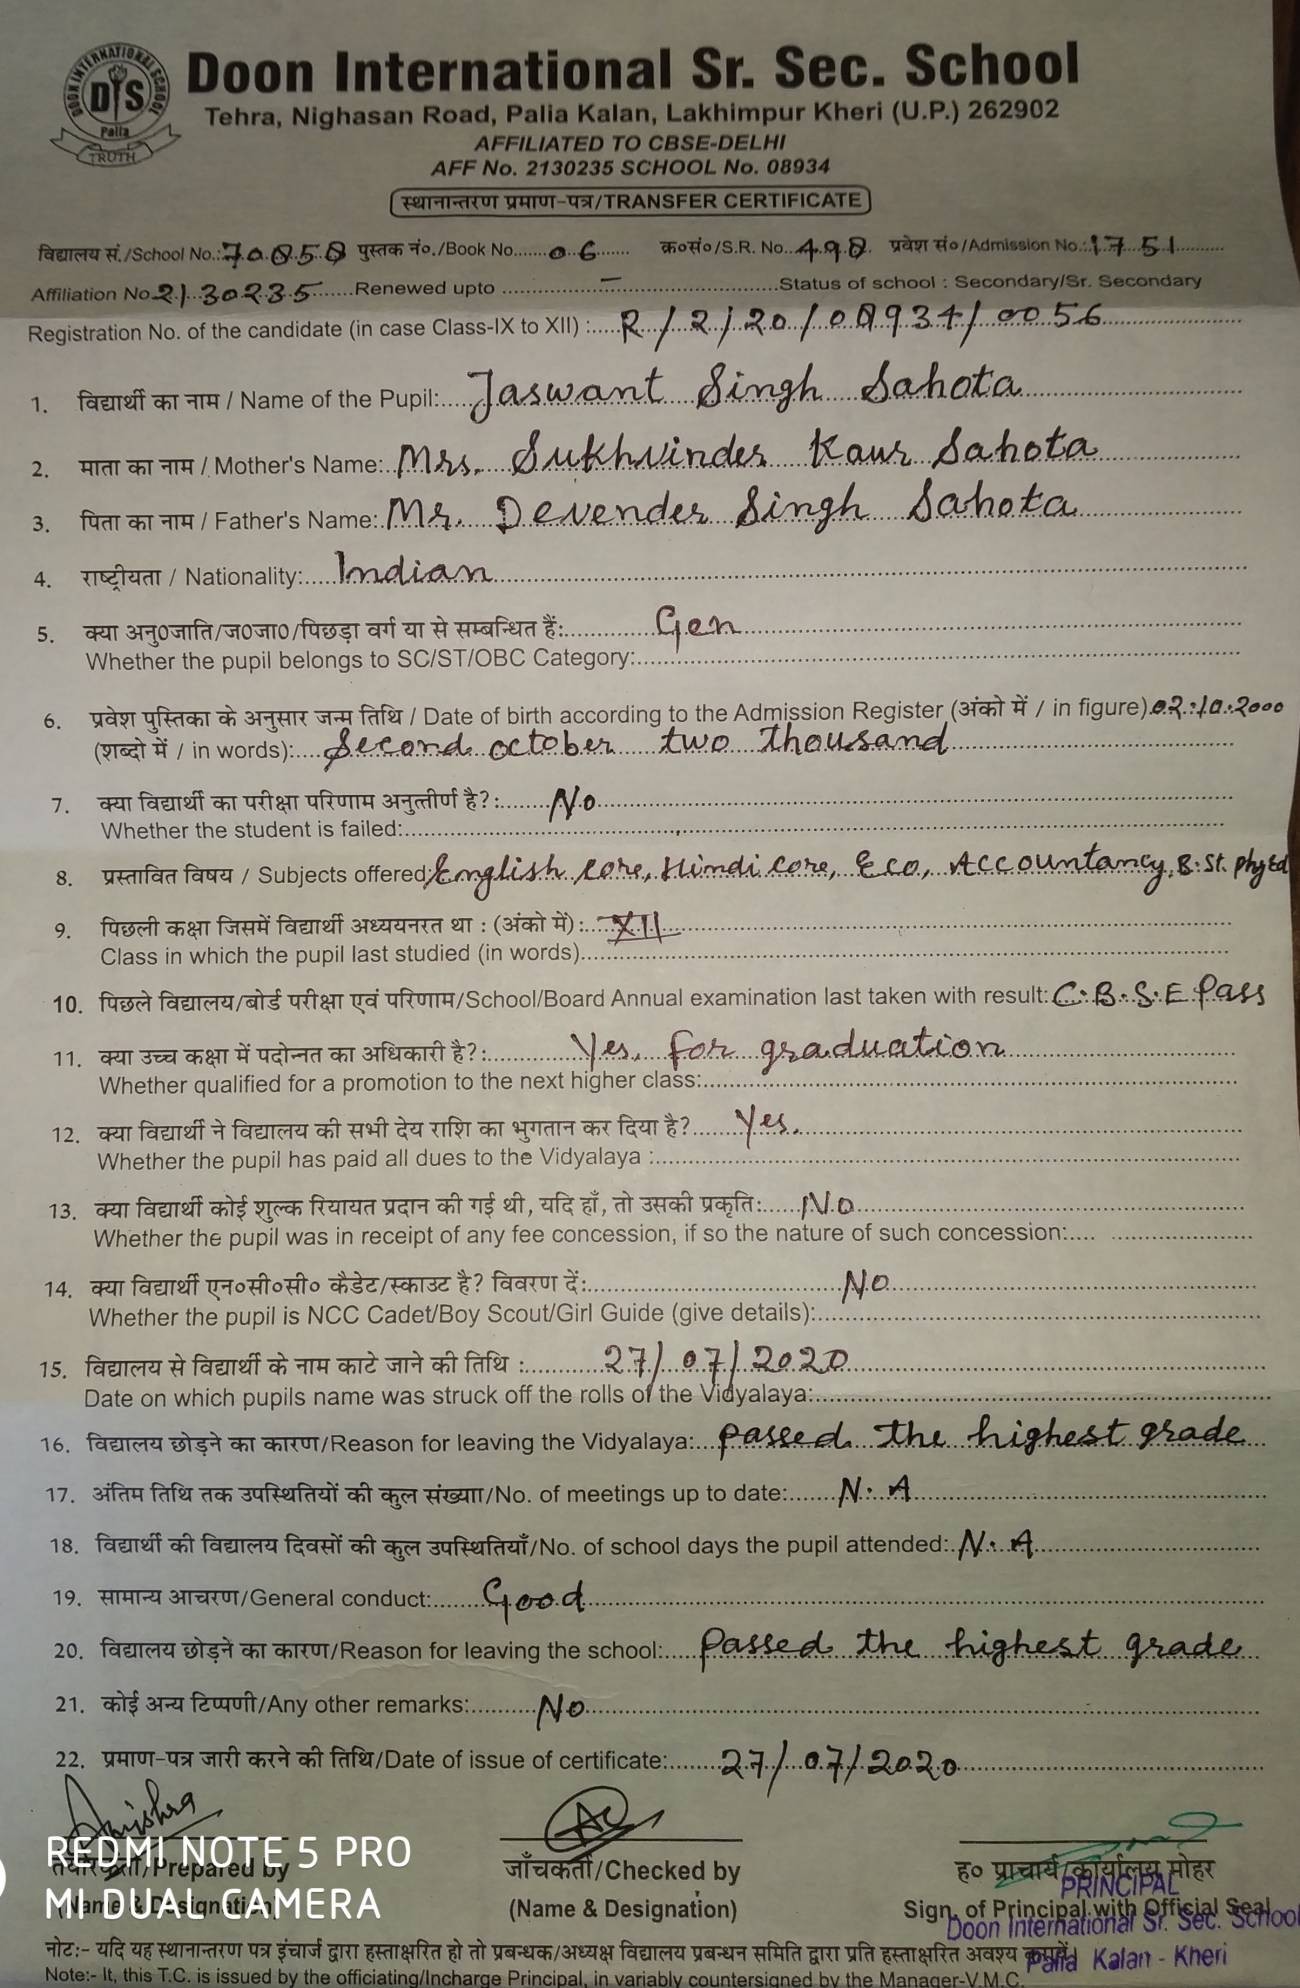 DOON INTERNATIONAL SCHOOL
DIS
Palia
TRUTH
Doon International Sr. Sec. School
Tehra, Nighasan Road, Palia Kalan, Lakhimpur Kheri (U.P.) 262902
AFFILIATED TO CBSE-DELHI
AFF No. 2130235 SCHOOL No. 08934
स्थानान्तरण प्रमाण-पत्र/TRANSFER CERTIFICATE
विद्यालय सं./School No.: 70858 पुस्तक नं०./Book No. 06 क्र०सं०/S.R. No. 498 प्रवेश सं०/Admission No.: 1751
Affiliation No. 2130235 Renewed upto – Status of school : Secondary/Sr. Secondary
Registration No. of the candidate (in case Class-IX to XII) : R/2/20/08934/0056
1. विद्यार्थी का नाम / Name of the Pupil: Jaswant Singh Sahota
2. माता का नाम / Mother's Name: Mrs. Sukhvinder Kaur Sahota
3. पिता का नाम / Father's Name: Mr. Devender Singh Sahota
4. राष्ट्रीयता / Nationality: Indian
5. क्या अनु0जाति/ज0जा0/पिछड़ा वर्ग या से सम्बन्धित हैं: Gen
Whether the pupil belongs to SC/ST/OBC Category:
6. प्रवेश पुस्तिका के अनुसार जन्म तिथि / Date of birth according to the Admission Register (अंको में / in figure) 02.10.2000
(शब्दो में / in words): Second october two thousand
7. क्या विद्यार्थी का परीक्षा परिणाम अनुत्तीर्ण है?: No
Whether the student is failed:
8. प्रस्तावित विषय / Subjects offered: English core, Hindi core, Eco, Accountancy, B.St. Phy Ed
9. पिछली कक्षा जिसमें विद्यार्थी अध्ययनरत था : (अंको में): XII
Class in which the pupil last studied (in words)
10. पिछले विद्यालय/बोर्ड परीक्षा एवं परिणाम/School/Board Annual examination last taken with result: C.B.S.E Pass
11. क्या उच्च कक्षा में पदोन्नत का अधिकारी है?: Yes, for graduation
Whether qualified for a promotion to the next higher class:
12. क्या विद्यार्थी ने विद्यालय की सभी देय राशि का भुगतान कर दिया है? Yes.
Whether the pupil has paid all dues to the Vidyalaya :
13. क्या विद्यार्थी कोई शुल्क रियायत प्रदान की गई थी, यदि हाँ, तो उसकी प्रकृति: No
Whether the pupil was in receipt of any fee concession, if so the nature of such concession:
14. क्या विद्यार्थी एन०सी०सी० कैडेट/स्काउट है? विवरण दें: No
Whether the pupil is NCC Cadet/Boy Scout/Girl Guide (give details):
15. विद्यालय से विद्यार्थी के नाम काटे जाने की तिथि : 27/07/2020
Date on which pupils name was struck off the rolls of the Vidyalaya:
16. विद्यालय छोड़ने का कारण/Reason for leaving the Vidyalaya: Passed the highest grade
17. अंतिम तिथि तक उपस्थितियों की कुल संख्याा/No. of meetings up to date: N.A
18. विद्यार्थी की विद्यालय दिवसों की कुल उपस्थितियाँ/No. of school days the pupil attended: N.A
19. सामान्य आचरण/General conduct: Good
20. विद्यालय छोड़ने का कारण/Reason for leaving the school: Passed the highest grade
21. कोई अन्य टिप्पणी/Any other remarks: No
22. प्रमाण-पत्र जारी करने की तिथि/Date of issue of certificate: 27/07/2020
REDMI NOTE 5 PRO
MI DUAL CAMERA
तैयारकर्ता/Prepared by जाँचकर्ता/Checked by ह० प्राचार्य/कार्यालय मोहर
(Name & Designation) (Name & Designation) Sign. of Principal with Official Seal
PRINCIPAL
Doon International Sr. Sec. School
Palia Kalan - Kheri
नोटः- यदि यह स्थानान्तरण पत्र इंचार्ज द्वारा हस्ताक्षरित हो तो प्रबन्धक/अध्यक्ष विद्यालय प्रबन्धन समिति द्वारा प्रति हस्ताक्षरित अवश्य
Note:- It, this T.C. is issued by the officiating/Incharge Principal, in variably countersigned by the Manager-V.M.C.